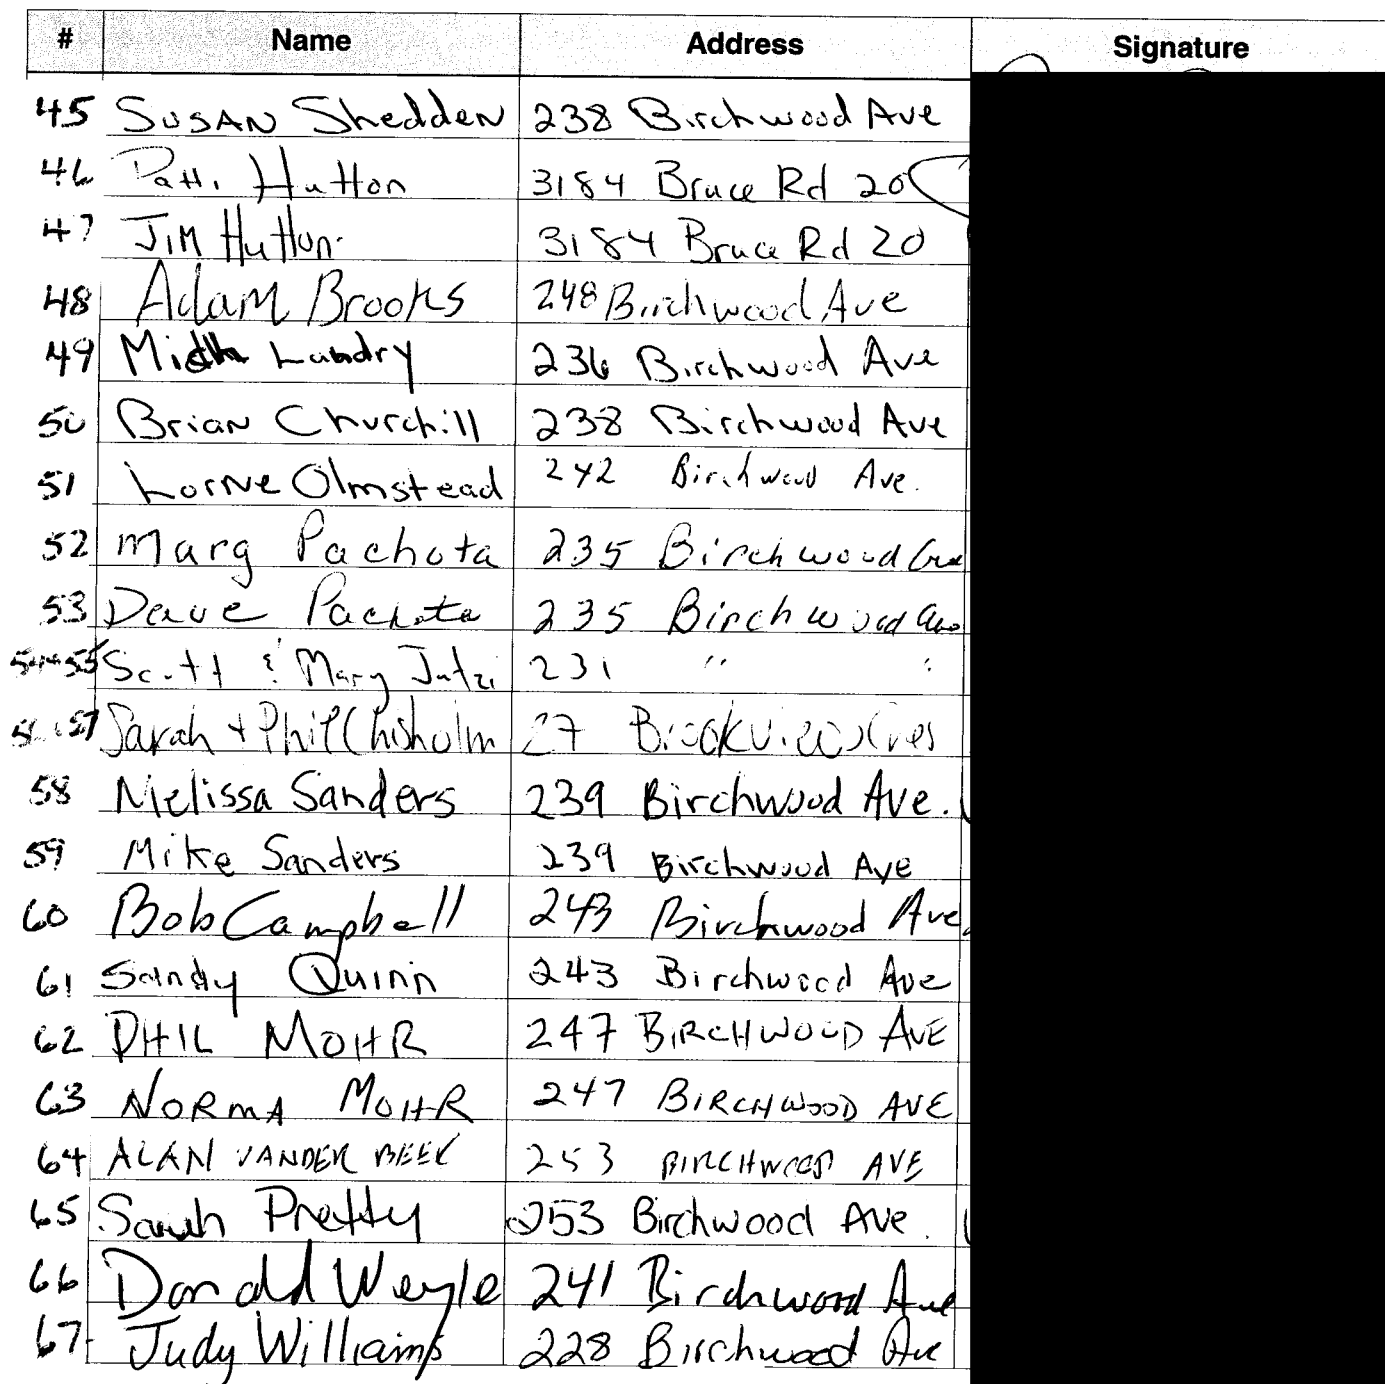 # Name Address Signature
45 Susan Shedden 238 Birchwood Ave
46 Patti Hutton 3184 Bruce Rd 20
47 Jim Hutton 3184 Bruce Rd 20
48 Adam Brooks 248 Birchwood Ave
49 Landry 236 Birchwood Ave
50 Brian Churchill 238 Birchwood Ave
51 Lorne Olmstead 242 Birchwood Ave.
52 Marg Pachota 235 Birchwood Ave
53 Dave Pachota 235 Birchwood Ave
54+55 Scott & Mary Jutzi 231 " "
56+57 Sarah + Phil Chisholm 27 Brookview Cres
58 Melissa Sanders 239 Birchwood Ave.
59 Mike Sanders 239 Birchwood Ave
60 Bob Campbell 243 Birchwood Ave
61 Sandy Quinn 243 Birchwood Ave
62 PHIL MOHR 247 BIRCHWOOD AVE
63 NORMA MOHR 247 BIRCHWOOD AVE
64 ALAN VANDER BEEK 253 BIRCHWOOD AVE
65 Sarah Pretty 253 Birchwood Ave.
66 Donald Weyle 241 Birchwood Ave
67 Judy Williams 228 Birchwood Ave